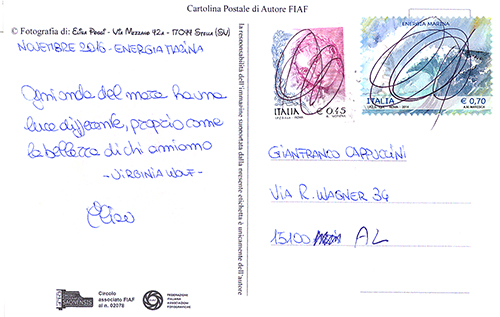 Cartolina Postale di Autore FIAF
© Fotografia di: Elisa Poggi - Via Mezzano 42a - 17044 Stella (SV)
NOVEMBRE 2016 - ENERGIA MARINA
Ogni onda del mare ha una
luce differente, proprio come
la bellezza di chi amiamo
- VIRGINIA WOLF -
Elisa
Circolo
associato FIAF
al n. 02078
FEDERAZIONE
ITALIANA
ASSOCIAZIONI
FOTOGRAFICHE
la responsabilità dell'immagine supportata dalla presente etichetta è unicamente dell'autore
ITALIA
€ 0,45
ENERGIA MARINA
ITALIA
€ 0,70
GIANFRANCO CAPPUCCINI
VIA R. WAGNER 34
15100 AL